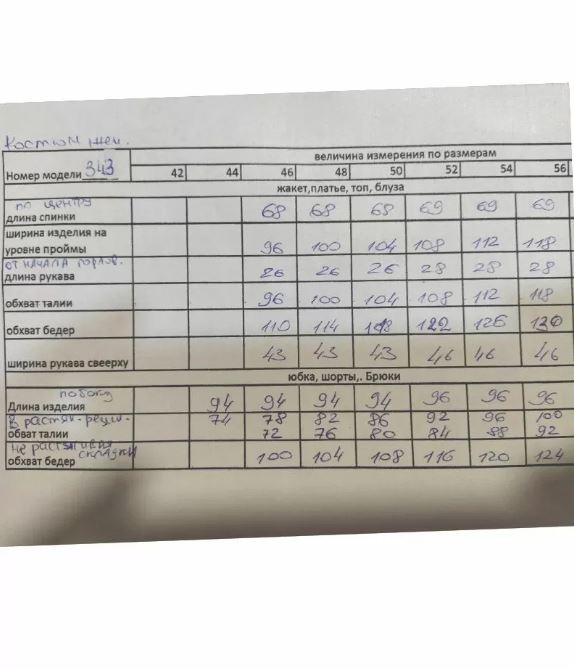 Костюм жен.
величина измерения по размерам
Номер модели 343 42 44 46 48 50 52 54 56
жакет,платье, топ, блуза
по центру
длина спинки 68 68 68 69 69 69
ширина изделия на
уровне проймы 96 100 104 108 112 118
от начала горлов.
длина рукава 26 26 26 28 28 28
обхват талии 96 100 104 108 112 118
обхват бедер 110 114 118 122 126 130
ширина рукава свеерху 43 43 43 46 46 46
юбка, шорты,. Брюки
по боку
Длина изделия 94 94 94 94 96 96 96
в растян. 74 78 82 86 92 96 100
обват талии 72 76 80 84 88 92
не растягивая складки
обхват бедер 100 104 108 116 120 124